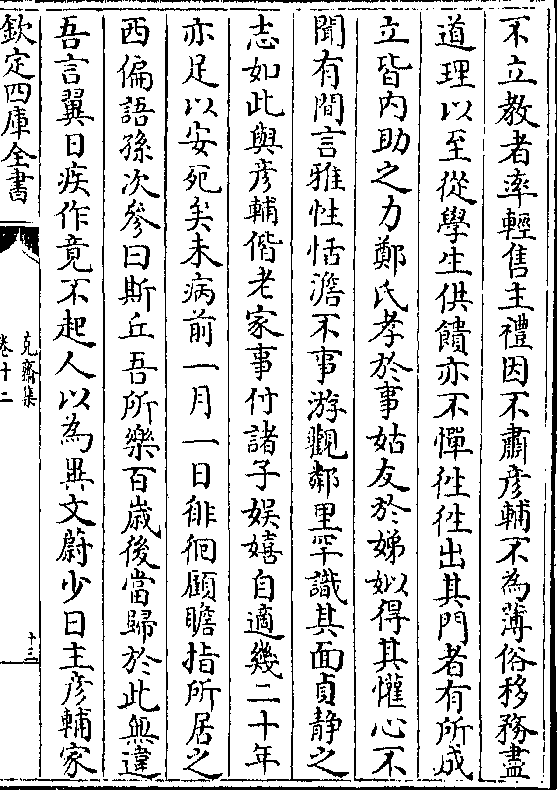 不立教者率輕售主禮因不肅彦輔不為薄俗移務盡
道理以至從學生供饋亦不憚徃徃出其門者有所成
立皆内助之力鄭氏孝於事姑友於娣姒得其懽心不
聞有間言雅性恬澹不事游觀鄰里罕識其面貞静之
志如此與彦輔偕老家事付諸子娱嬉自適幾二十年
亦足以安死矣未病前一月一日徘徊顧瞻指所居之
西偏語孫次參曰斯丘吾所樂百歳後當歸於此無違
吾言翼日疾作竟不起人以為異文蔚少日主彦輔家
欽定四庫全書
克齋集
卷十二
十三